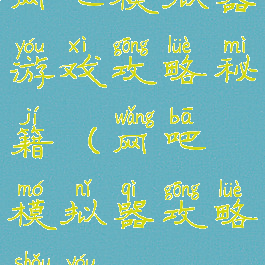 yóu xì gōng lüè mì
游戏攻略秘
jí wǎng bā
籍(网吧
mó nǐ qì gōng lüè
模拟器攻略
shǒu yóu